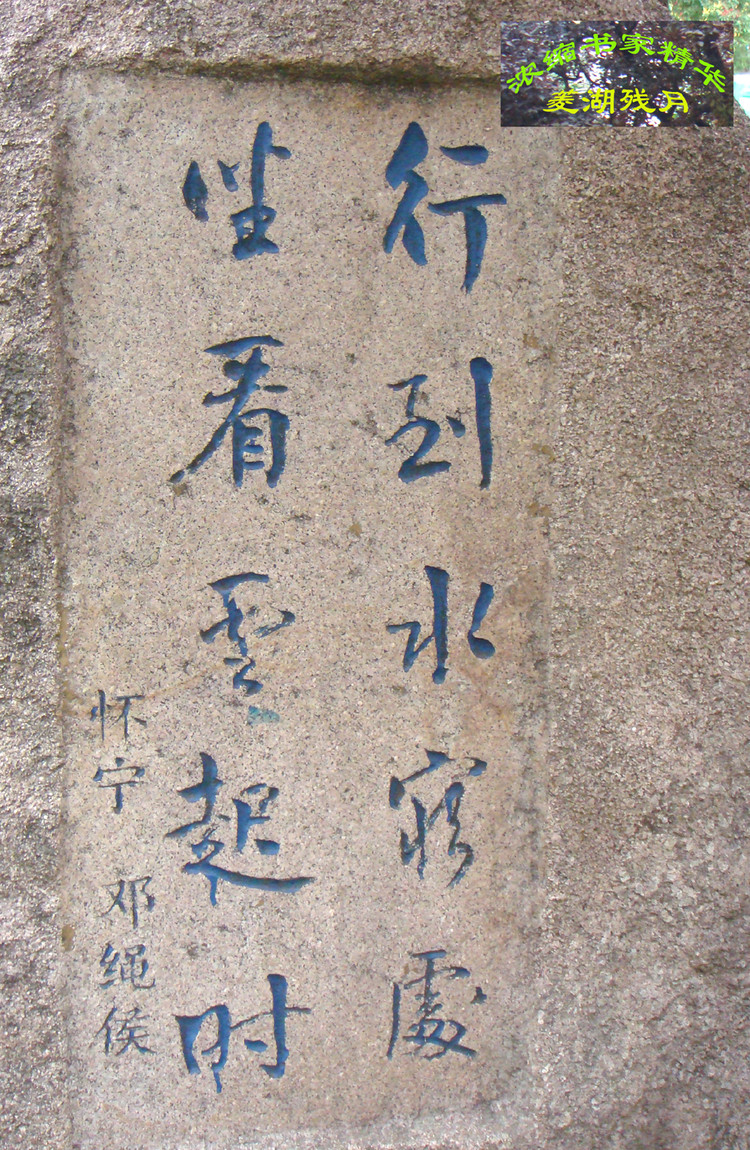 浓缩书家精华
菱湖残月
行到水窮處
坐看雲起时
怀宁 邓绳侯